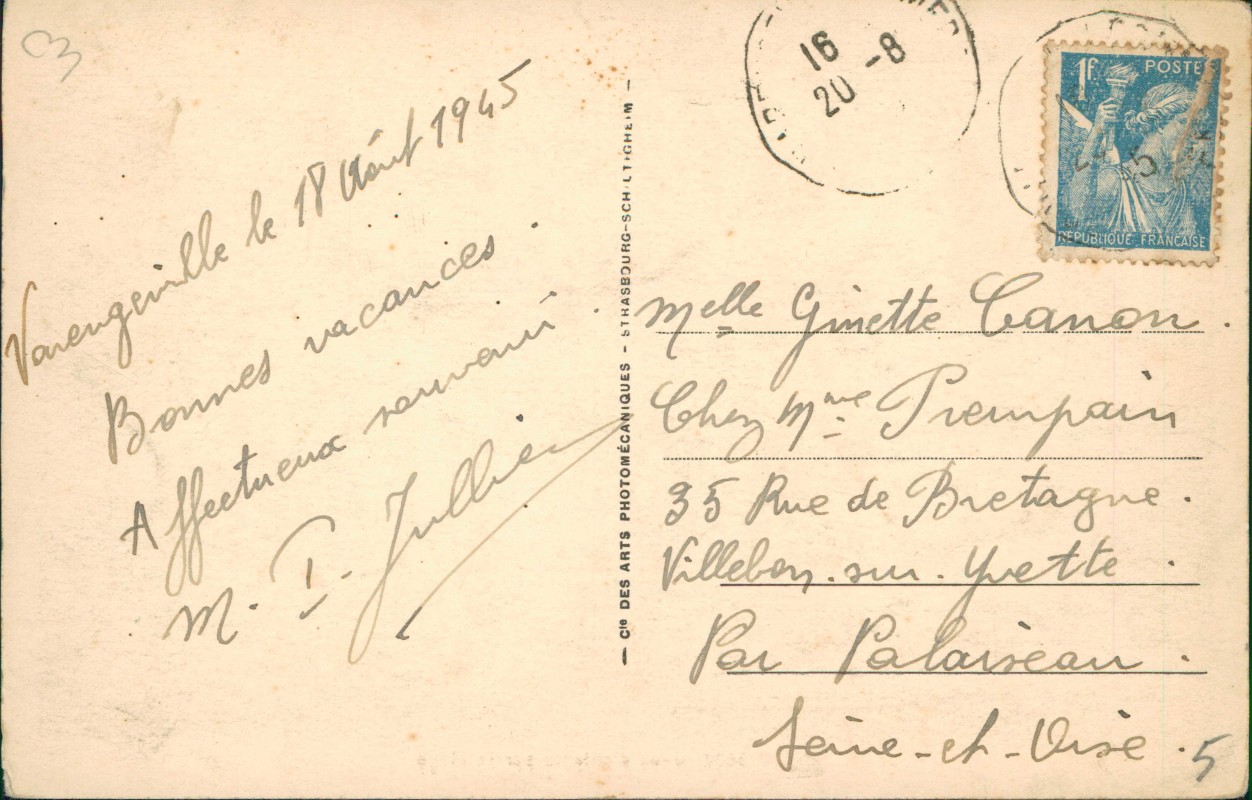 C3
Varengeville le 18 Août 1945
Bonnes vacances.
Affectueux souvenir.
M. I. Jullien
— Cie DES ARTS PHOTOMÉCANIQUES - STRASBOURG-SCHILTIGHEIM —
16
20 -8
1F POSTES
RÉPUBLIQUE FRANÇAISE
Melle Ginette Canon.
Chez Mme Prempain
35 Rue de Bretagne.
Villebon.sur.Yvette.
Par Palaiseau.
Seine-et-Oise.
5